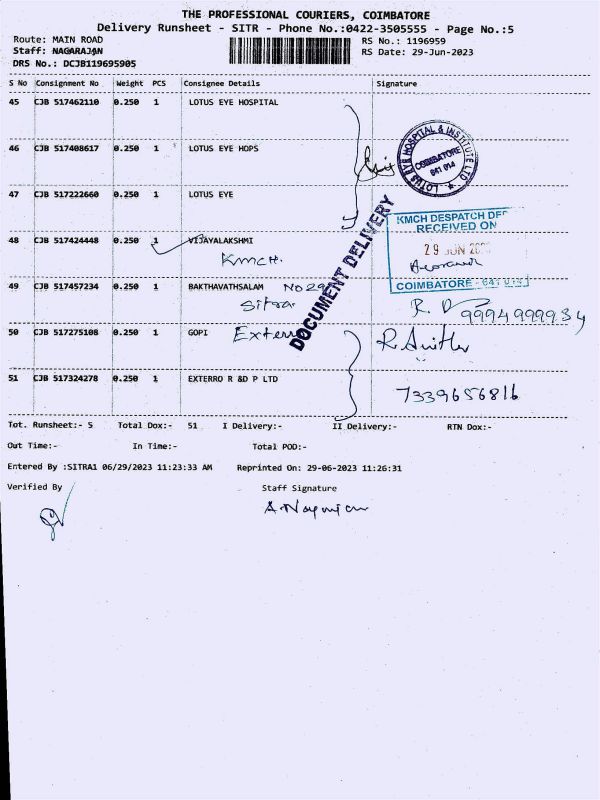 THE PROFESSIONAL COURIERS, COIMBATORE
Delivery Runsheet - SITR - Phone No.:0422-3505555 - Page No.:5
Route: MAIN ROAD
RS No.: 1196959
Staff: NAGARAJAN
RS Date: 29-Jun-2023
DRS No.: DCJB119695905
S No Consignment No Weight PCS Consignee Details Signature
45 CJB 517462110 0.250 1 LOTUS EYE HOSPITAL
46 CJB 517408617 0.250 1 LOTUS EYE HOPS
LOTUS EYE HOSPITAL & INSTITUTE LTD
COIMBATORE
641 014
47 CJB 517222660 0.250 1 LOTUS EYE
DOCUMENT DELIVERY
KMCH DESPATCH DEP
RECEIVED ON
29 JUN
COIMBATORE - 641 014
48 CJB 517424448 0.250 1 VIJAYALAKSHMI
KMCH.
49 CJB 517457234 0.250 1 BAKTHAVATHSALAM NO 29
Sitra
R. D
9994999934
50 CJB 517275108 0.250 1 GOPI Exterro
51 CJB 517324278 0.250 1 EXTERRO R &D P LTD
7339656816
Tot. Runsheet:- 5 Total Dox:- 51 I Delivery:- II Delivery:- RTN Dox:-
Out Time:- In Time:- Total POD:-
Entered By :SITRA1 06/29/2023 11:23:33 AM Reprinted On: 29-06-2023 11:26:31
Verified By Staff Signature